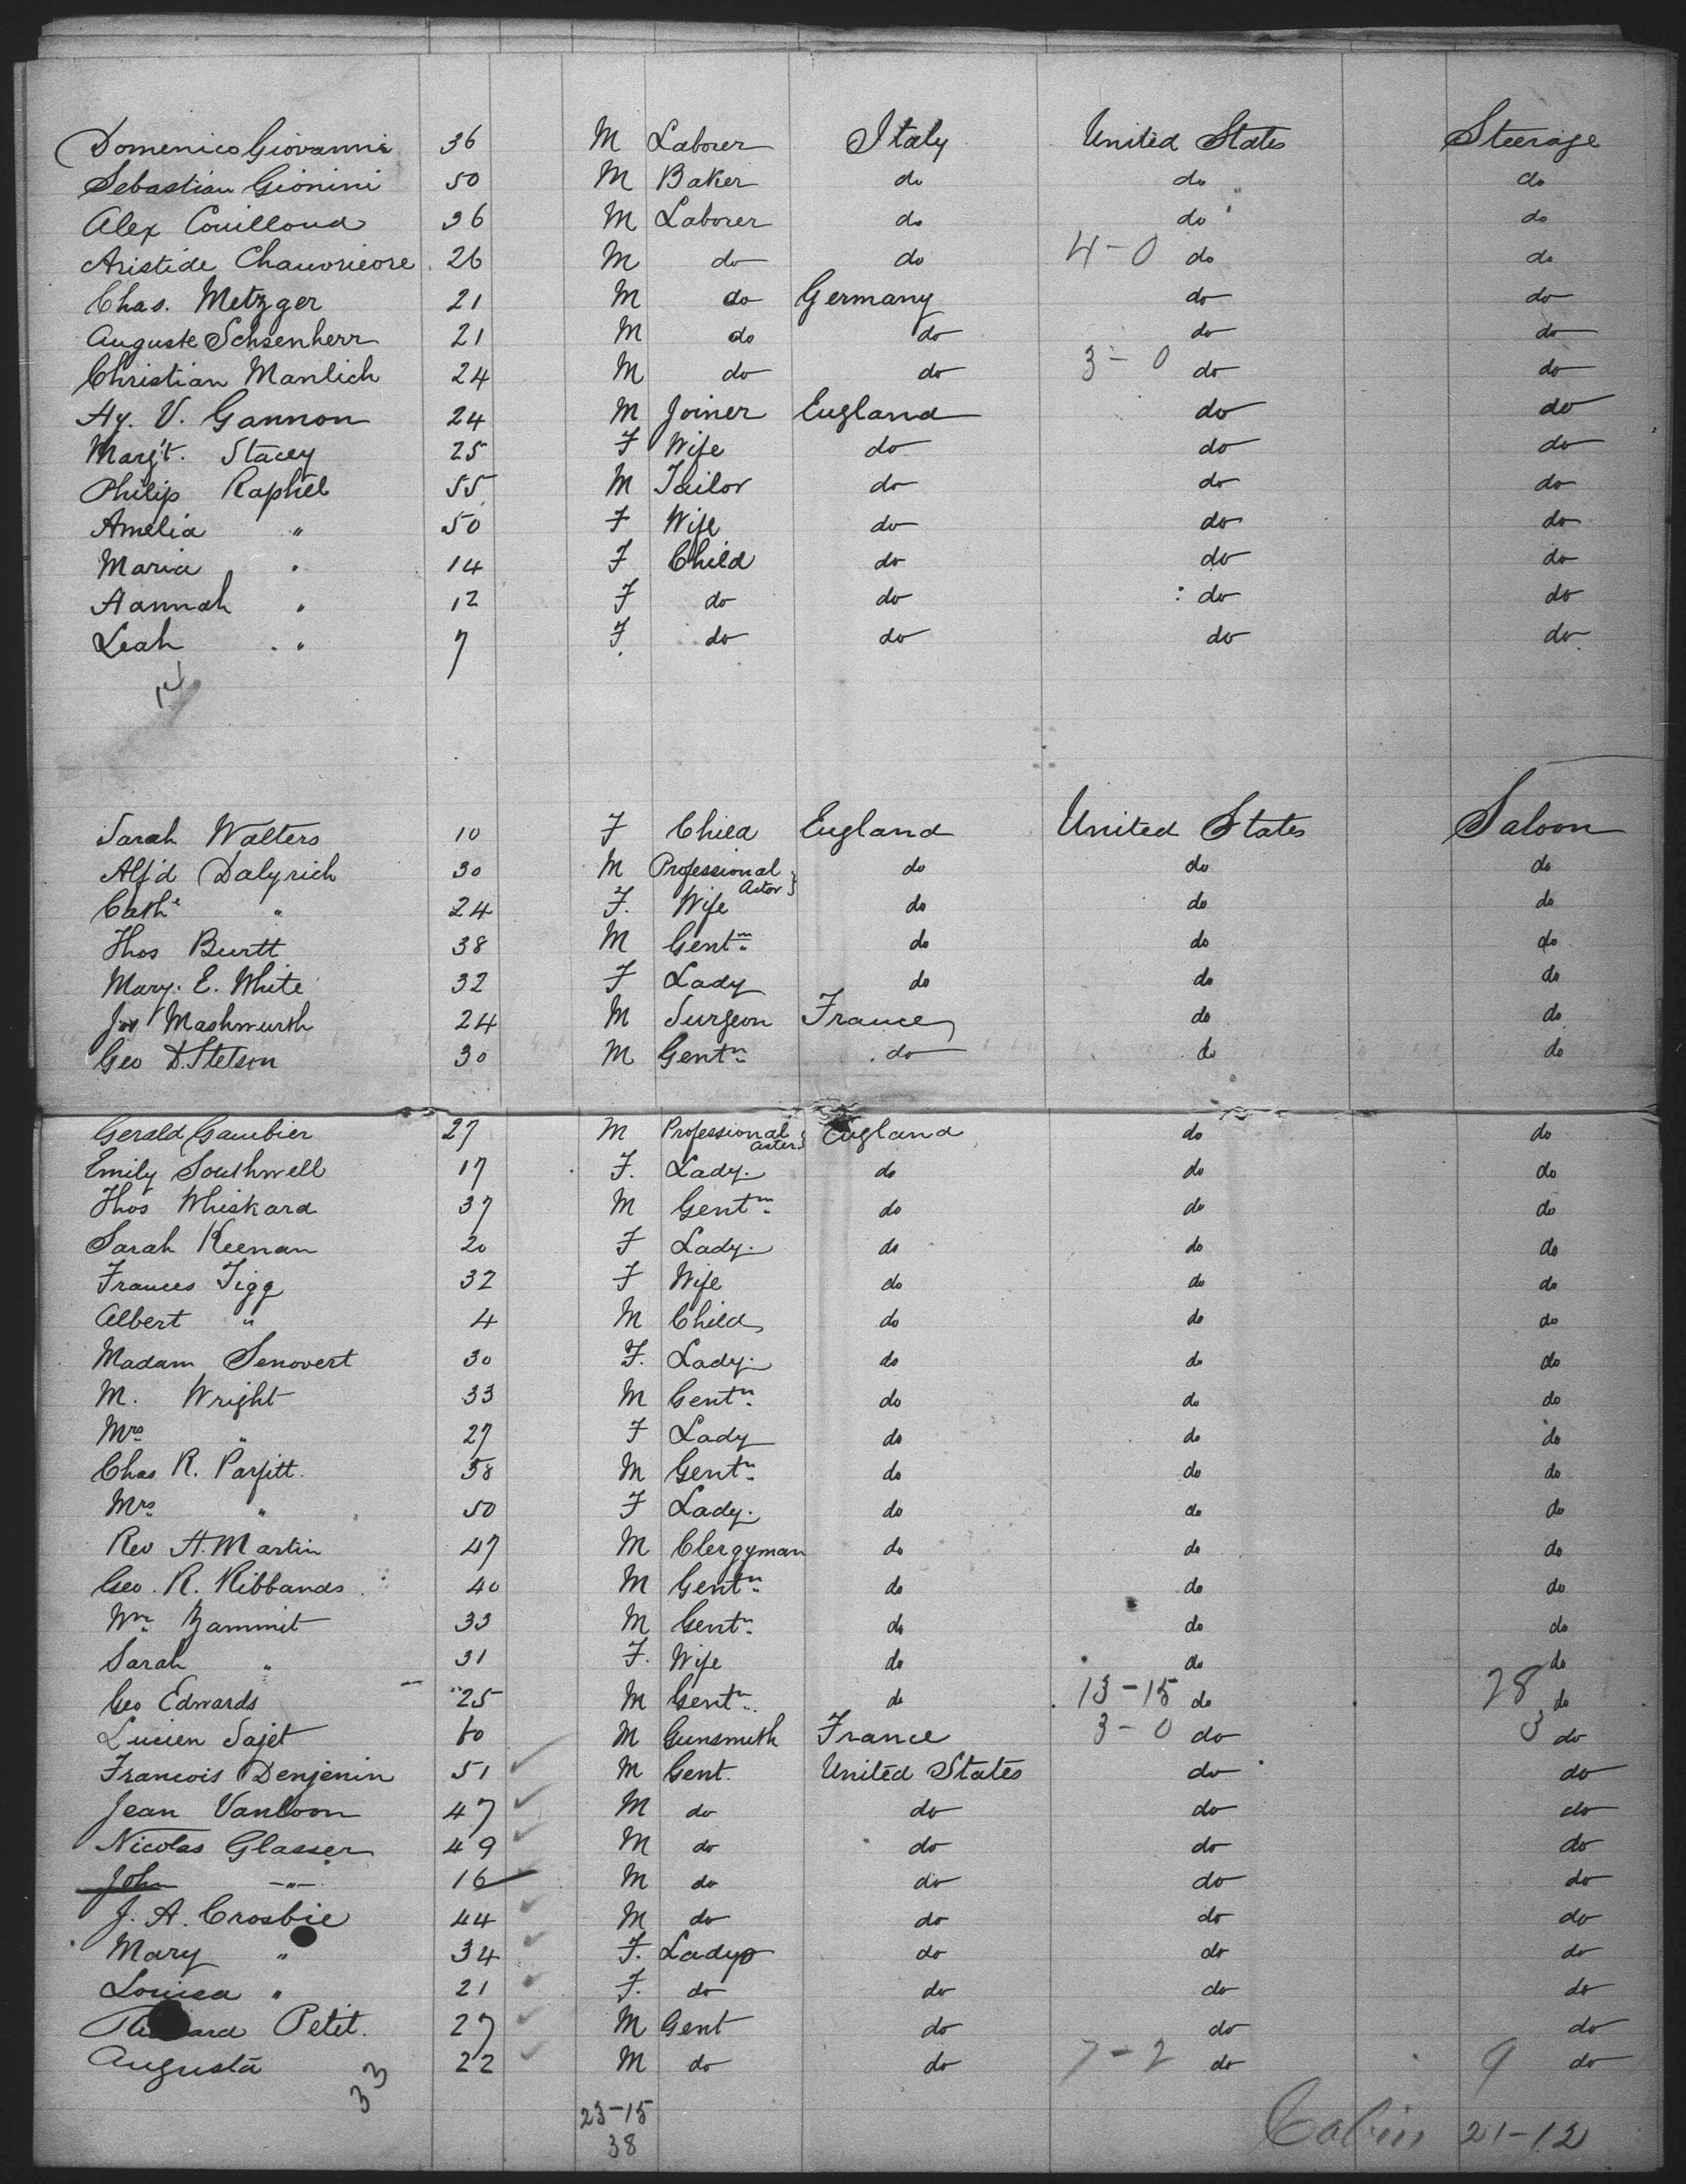 Domenico Giovanni 36 M Laborer Italy United States Steerage
Sebastian Gionini 50 M Baker do do do
Alex Couilloud 36 M Laborer do do do
Aristide 26 M do do 4-0 do do
Chas. Metzger 21 M do Germany do do
Auguste Schsenherr 21 M do do do do
Christian Manlich 24 M do do 3-0 do do
Hy. V. Gannon 24 M Joiner England do do
Marg't. Stacey 25 F Wife do do do
Philip Raphel 55 M Tailor do do do
Amelia " 50 F Wife do do do
Maria " 14 F Child do do do
Hannah " 12 F do do do do
Leah " 7 F do do do do
Sarah Walters 10 F Child England United States Saloon
Alf'd Dalyrich 30 M Professional Actor } do do do
Cathe " 24 F. Wife do do do
Thos Burtt 38 M Gentn do do do
Mary. E. White 32 F Lady do do do
Jos Mashwurth 24 M Surgeon France do do
Geo D. Stetson 30 M Gentn do do do
Gerald Gambier 27 M Professional actor } England do do
Emily Southwell 17 F. Lady. do do do
Thos Whiskard 37 M Gentn do do do
Sarah Keenan 20 F Lady. do do do
Frances Tigg 32 F Wife do do do
Albert " 4 M Child do do do
Madam Senovert 30 F. Lady. do do do
M. Wright 33 M Gentn do do do
Mrs " 27 F Lady do do do
Chas R. Parfitt 58 M Gentn do do do
Mrs " 50 F Lady. do do do
Rev H. Martin 47 M Clergyman do do do
Geo. R. Ribbands 40 M Gentn do do do
Wm Zammit 33 M Gentn do do do
Sarah " 31 F. Wife do do do
Geo Edwards 25 M Gentn do 13-15 do 28 do
Lucien Sajet 60 M Gunsmith France 3-0 do 3 do
Francois Denjenin 51 M Gent. United States do do
Jean Vanloon 47 M do do do do
Nicolas Glasser 49 M do do do do
John " 16 M do do do do
J. A. Crosbie 44 M do do do do
Mary " 34 F. Lady do do do
Louisa " 21 F. do do do do
Petit. 27 M Gent do do do
Augusta 22 M do do 7-2 do 9 do
33
23-15
38
Cabin 21-12